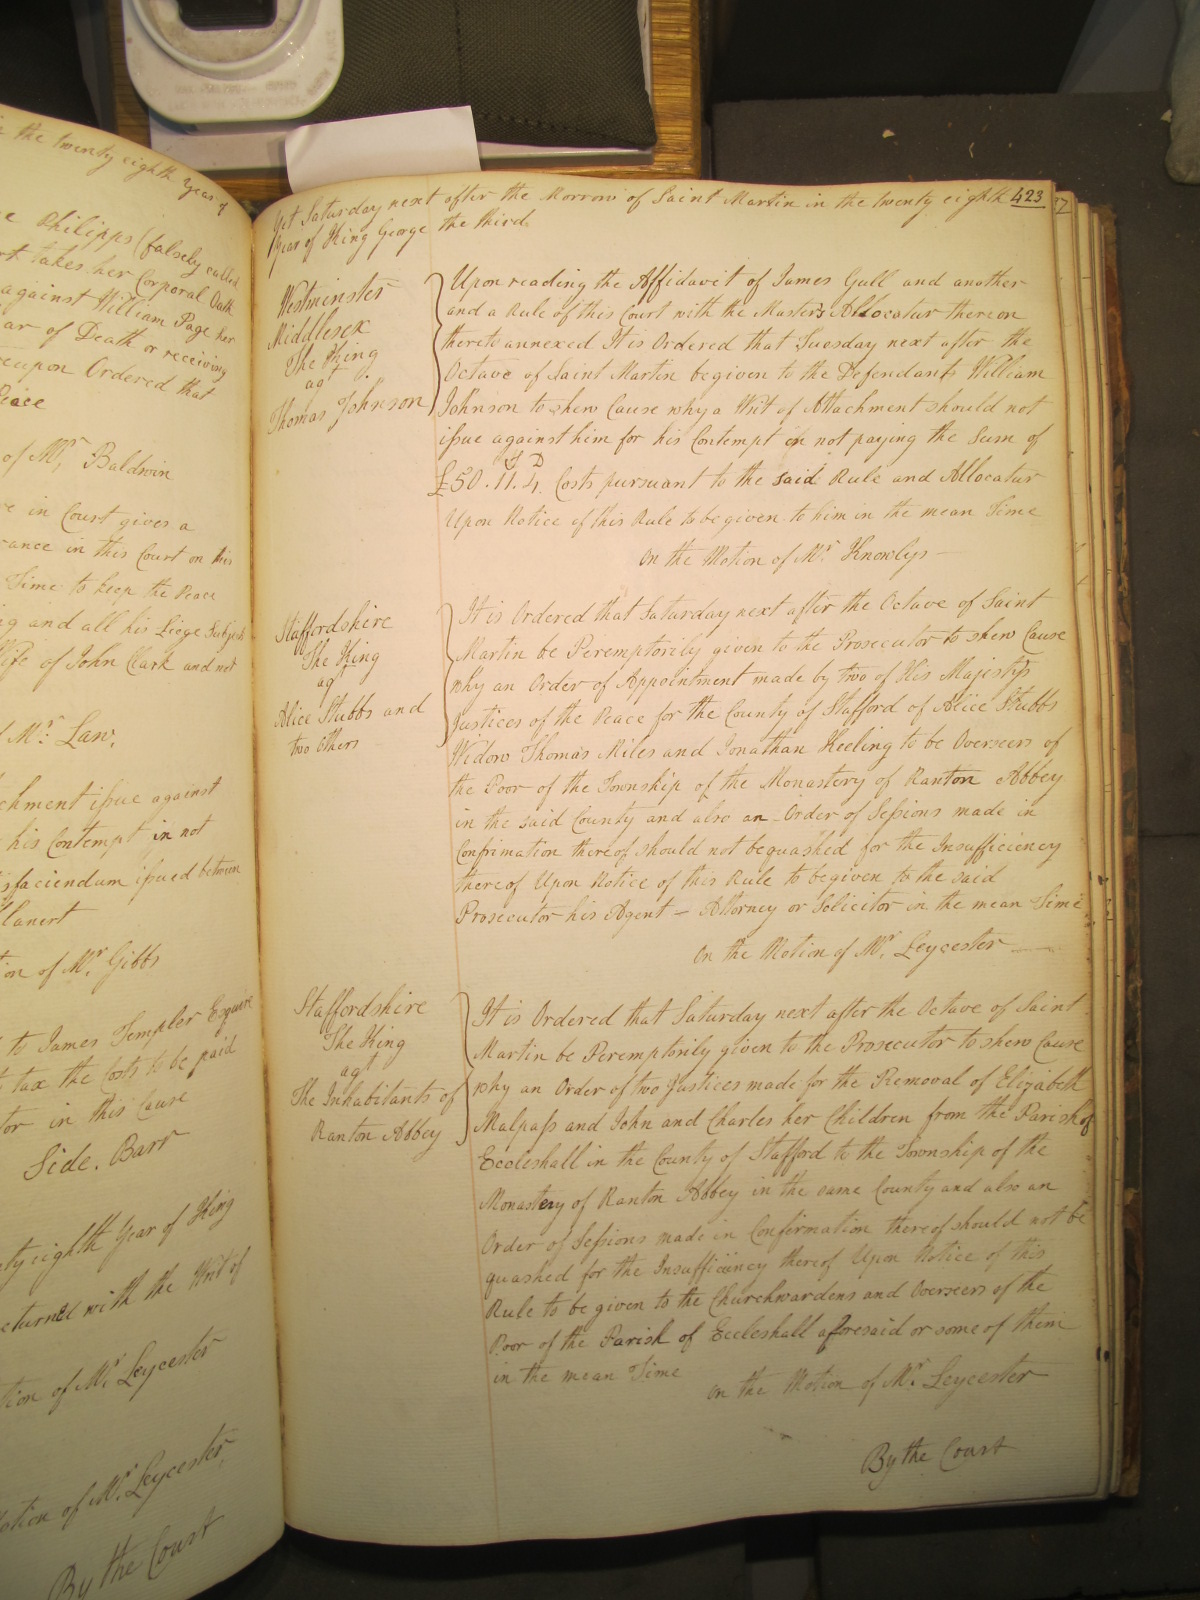 in the twenty eighth Year of
Philipps (falsely called
takes her Corporal Oath
against William Page her
ar of Death or receiving
eupon Ordered that
Peace
of Mr. Baldwin
e in Court gives a
ance in this Court on his
Time to keep the Peace
g and all his Liege Subjects
Wife of John Clark and not
Mr. Law.
chment issue against
his Contempt in not
isfaciendum issued between
llanert
ion of Mr. Gibbs
to James Templer Esquire
tax the Costs to be paid
tor in this Cause
Side. Barr
ty eighth Year of King
eturned with the Writ of
tion of Mr. Leycester
otion of Mr. Leycester,
By the Court
Yet Saturday next after the Morrow of Saint Martin in the twenty eighth 423
Year of King George the third.
Westminster
Middlesex
The King
agt.
Thomas Johnson
Upon reading the Affidavit of James Gull and another
and a Rule of this Court with the Master's Allocatur thereon
thereto annexed It is Ordered that Tuesday next after the
Octave of Saint Martin be given to the Defendants William
Johnson to shew Cause why a Writ of Attachment should not
issue against him for his Contempt in not paying the Sum of
£50. 11. 4. Costs pursuant to the said Rule and Allocatur
Upon Notice of this Rule to be given to him in the mean Time
On the Motion of Mr. Knowlys
Staffordshire
The King
agt
Alice Stubbs and
two others
It is Ordered that Saturday next after the Octave of Saint
Martin be Peremptorily given to the Prosecutor to shew Cause
why an Order of Appointment made by two of His Majestys
Justices of the Peace for the County of Stafford of Alice Stubbs
Widow Thomas Miles and Jonathan Keeling to be Overseers of
the Poor of the Township of the Monastery of Ranton Abbey
in the said County and also an Order of Sessions made in
Confirmation thereof should not be quashed for the Insufficiency
thereof Upon Notice of this Rule to be given to the said
Prosecutor his Agent – Attorney or Solicitor in the mean Time
On the Motion of Mr. Leycester
Staffordshire
The King
agt
The Inhabitants of
Ranton Abbey
It is Ordered that Saturday next after the Octave of Saint
Martin be Peremptorily given to the Prosecutor to shew Cause
why an Order of two Justices made for the Removal of Elizabeth
Malpass and John and Charles her Children from the Parish of
Eccleshall in the County of Stafford to the Township of the
Monastery of Ranton Abbey in the same County and also an
Order of Sessions made in Confirmation thereof should not be
quashed for the Insufficiency thereof Upon Notice of this
Rule to be given to the Churchwardens and Overseers of the
Poor of the Parish of Eccleshall aforesaid or some of them
in the mean Time
On the Motion of Mr. Leycester
By the Court